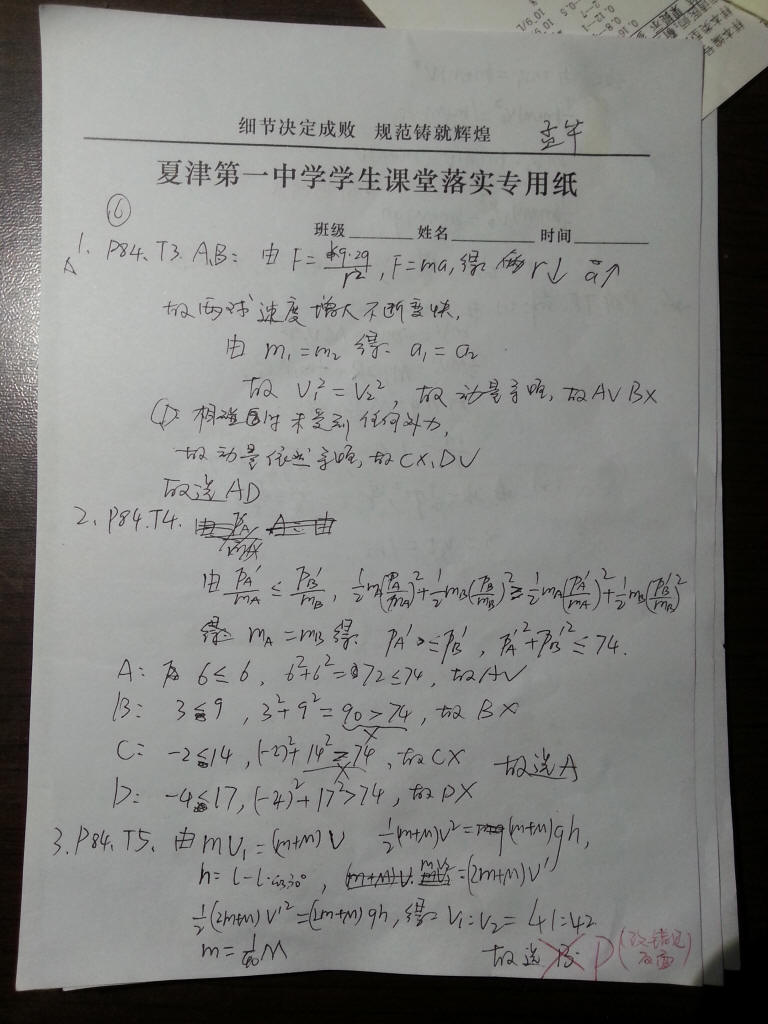 细节决定成败 规范铸就辉煌 孟华
夏津第一中学学生课堂落实专用纸
班级 姓名 时间
⑥
1. P84、T3. A、B: 由 F=kq·2q/r², F=ma, 得: r↓ a↑
故两球速度增大不断变快,
由 m₁=m₂ 得: a₁=a₂
故 V₁²=V₂², 故动量守恒, 故A√ B×
相碰时未受到任何外力,
故动量依然守恒, 故C×、D√
故选AD
2、P84.T4.
由 PA'/mA ≤ PB'/mB, ½mA(PA/mA)²+½mB(PB/mB)² ≥ ½mA(PA'/mA)²+½mB(PB'/mB)²
mA=mB 得: PA'≤PB', PA'²+PB'²≤74.
A: 6≤6, 6²+6²=72≤74, 故A√
B: 3≤9, 3²+9²=90>74, 故B×
C: -2≤14, (-2)²+14²≥74, 故C× 故选A
D: -4≤17, (-4)²+17²>74, 故D×
3.P84、T5、由 mV₁=(m+M)V ½(m+M)V²=(m+M)gh,
h=L-L·cos30°, mV₂=(2m+M)V'
½(2m+M)V'²=(2m+M)gh, 得: V₁:V₂=41:42
m=1/40M 故选 B. D (改错见反面)